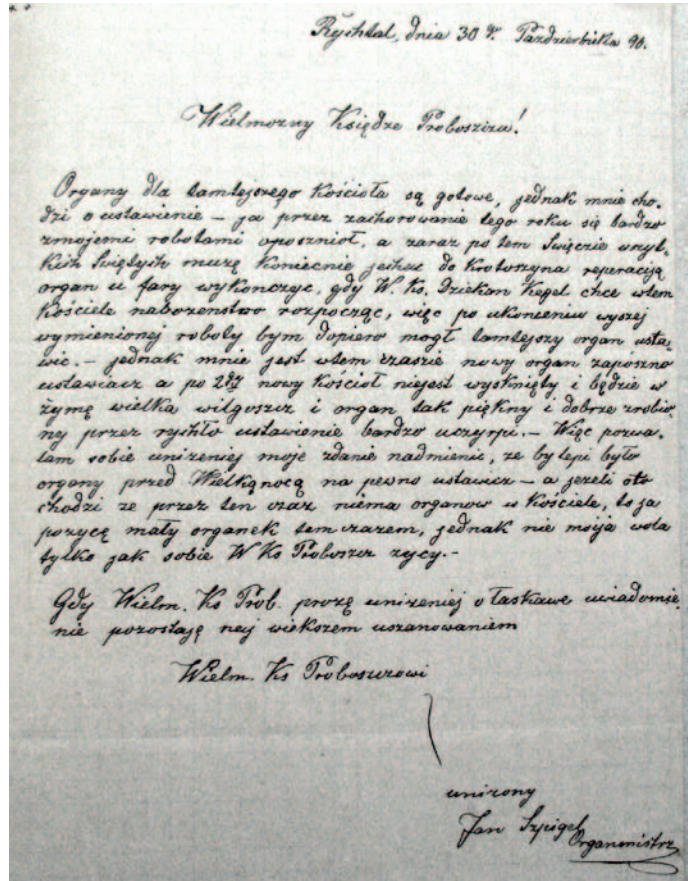 Rychtal, dnia 30 g. Pazdziernika 90.
Wielmozny Księdze Proboszczu!
Organy dla tamtejszego Kościoła są gotowe, jednak mnie cho-
dzi o ustawienie – ja przez zachorowanie tego roku się bardzo
zmojemi robotami opoznioł, a zaraz po tem Swięcie wszyt-
kich Swiętych muzę koniecznie jechac do Krotoszyna reperaciją
organ u fary wykonczyc, gdy W. Ks. Dziekan Kegel chce wtem
Kościele nabozenstwo rozpocząc, więc po ukonceniu wyszej
wymienionej roboty bym dopiero mogł tamtejszy organ usta-
wic. – jednak mnie jest wtem czasie nowy organ zapozno
ustawiacz a po nowy Kościoł niejest wysknięty i będzie w
zymę wielka wilgoszcz i organ tak piękny i dobrze zrobio-
nej przez rychło ustawienie bardzo uczyrpi. – Więc pozwa-
lam sobie unizeniej moje zdanie nadmienic, ze by lepi było
organy przed Wielkąnocą na pewno ustawicz – a jezeli oto
chodzi ze przez ten czaz niema organow w Kościele, to ja
pozycę mały organek tem czazem, jednak nie moija wola
tylko jak sobie W Ks Proboszcz zycy. –
Gdy Wielm. Ks Prob. prozę unizeniej o łaskawe uwiadomie-
nie pozostaję nej wiekszem uszanowaniem
Wielm. Ks Proboszczowi
unizony
Jan Szpigel
Organmistrz